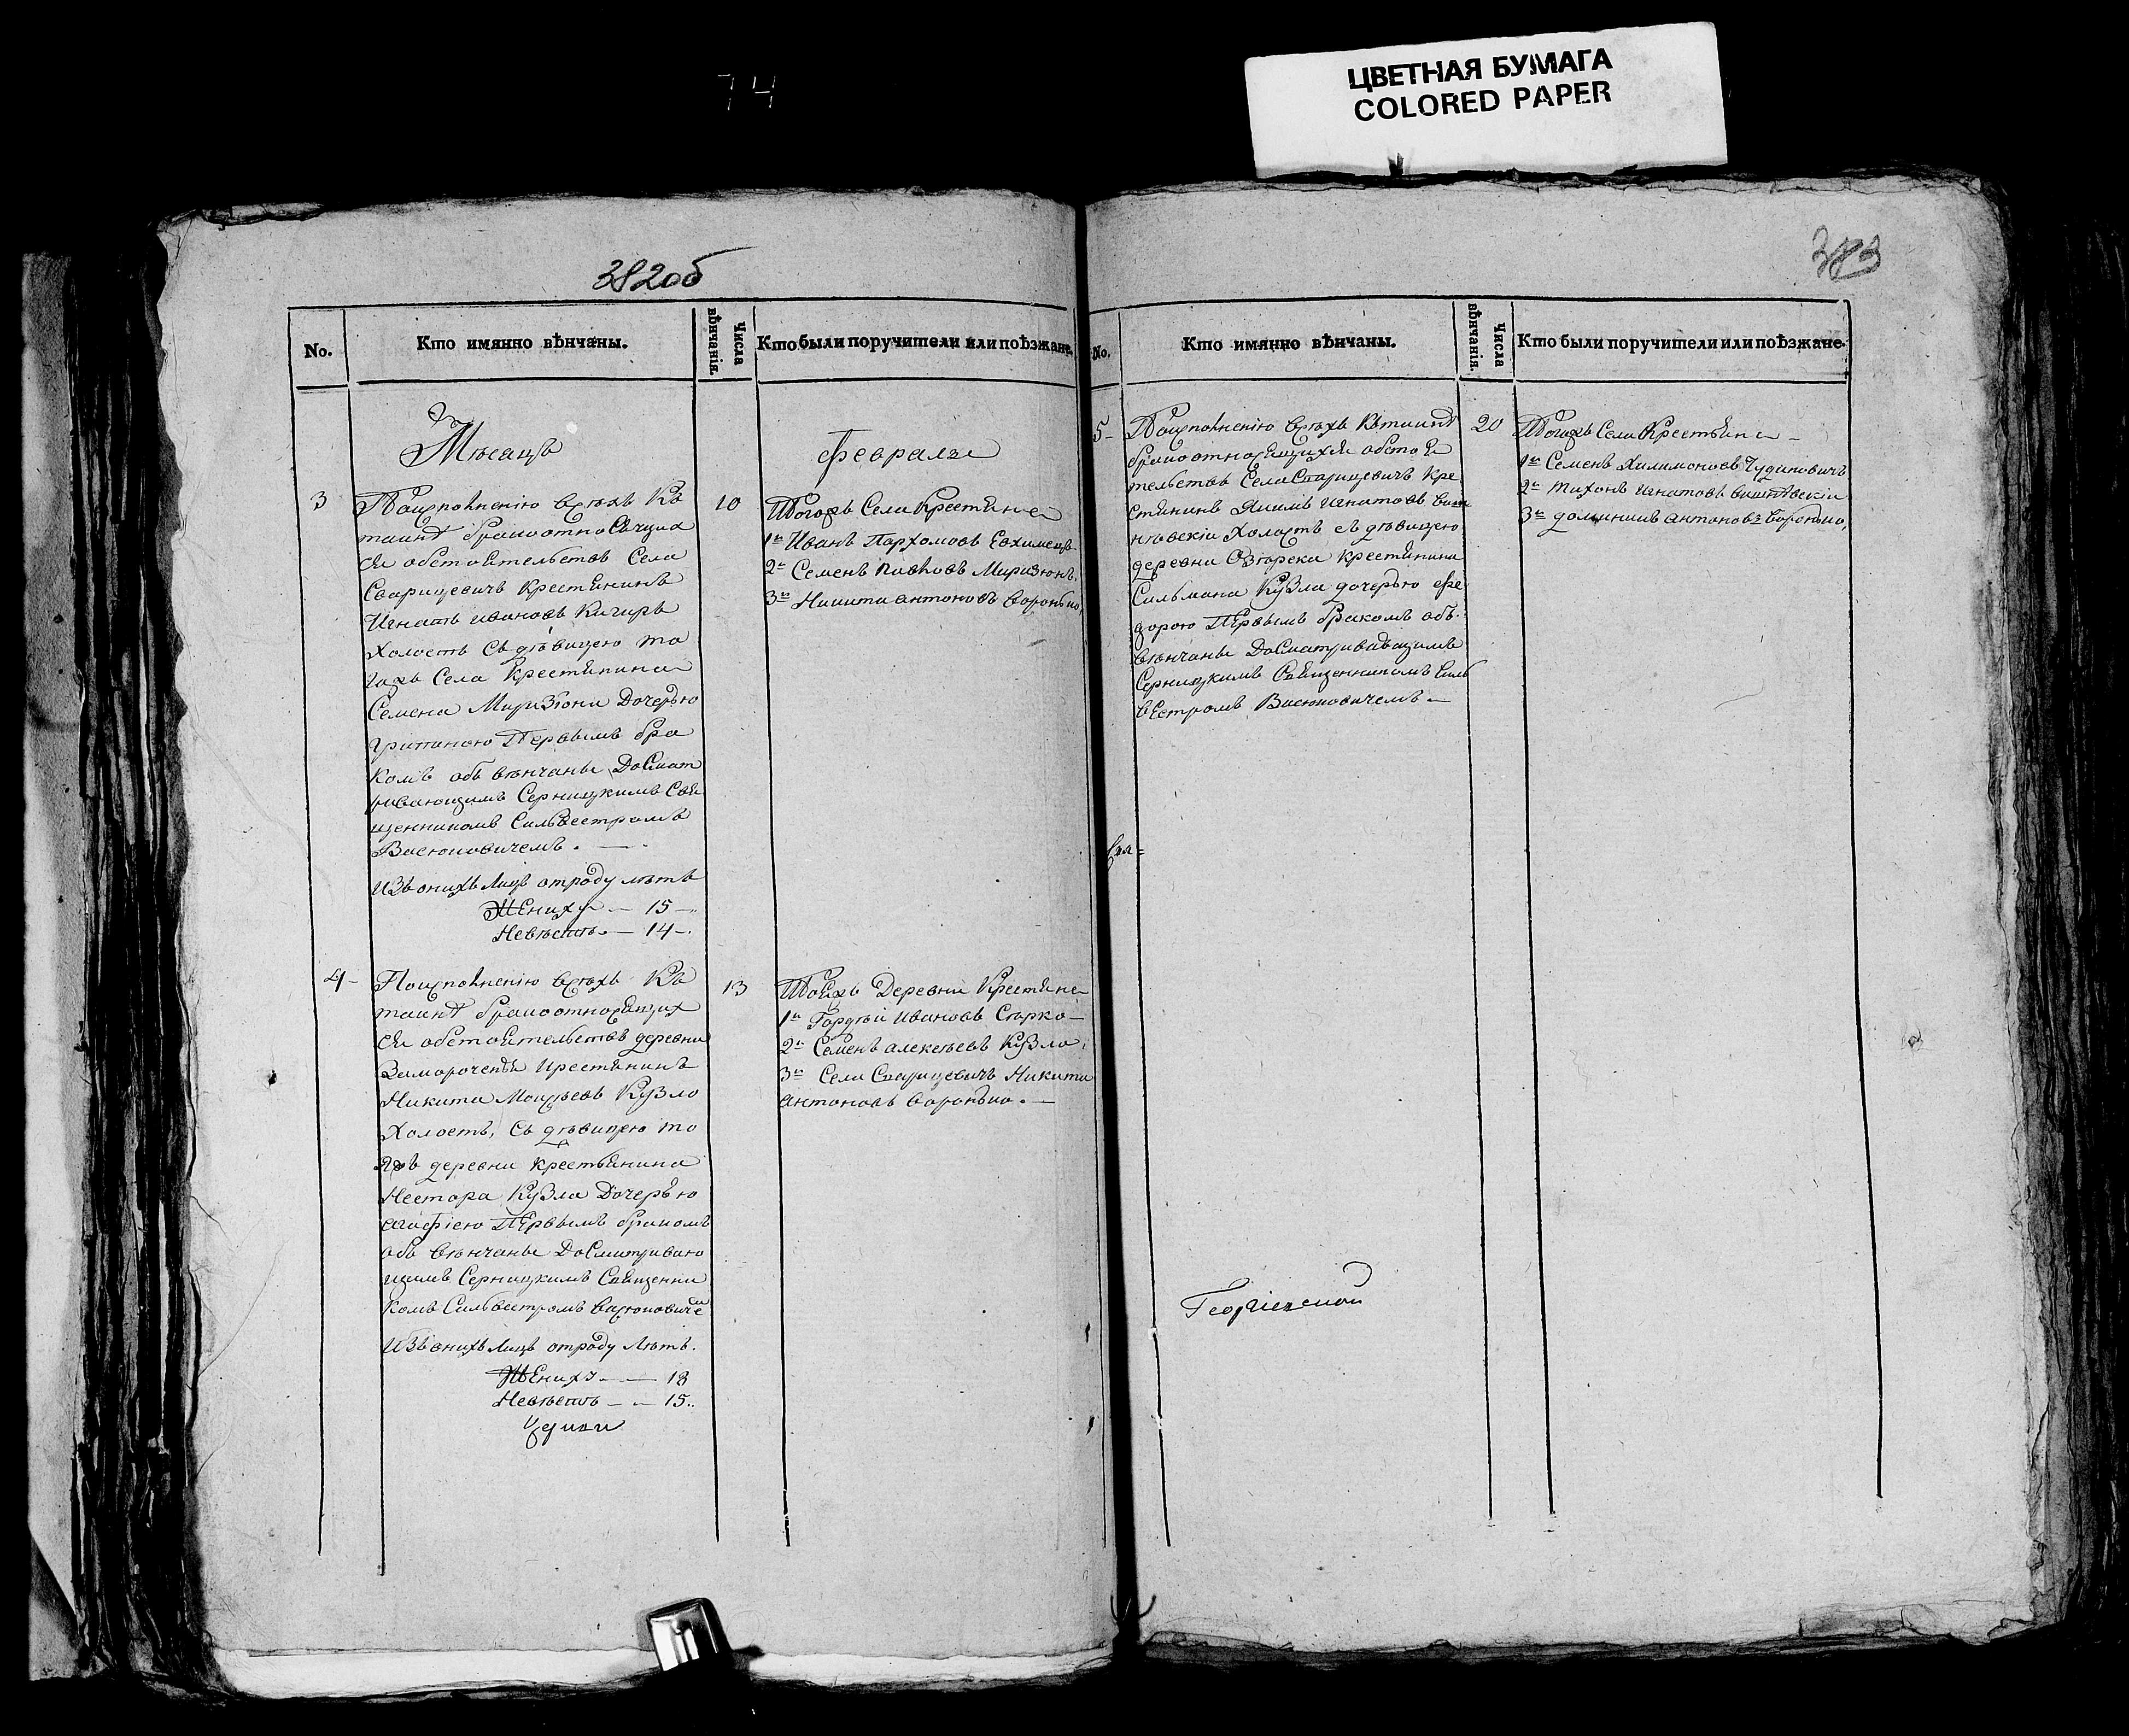 74
ЦВЕТНАЯ БУМАГА
COLORED PAPER
382об
No.
Кто имянно вѣнчаны.
Числа вѣнчанія.
Кто были поручители или поѣзжане.
Мѣсацъ
Февраль
3
По исполненію всѣхъ къ
таинѣ брака относящих
ся обстоятельствъ Села
Сварицевичъ Крестянинъ
Игнатъ Ивановъ Кичиръ
Холостъ Съ дѣвицею то
гожъ Села Крестянина
Семена Миризюни Дочерью
Первымъ бра
комъ обвѣнчаны Досмат
ривающимъ Серницкимъ Свя
щенникомъ Сильвестромъ
Васюковичемъ.
Изъ онихъ лицъ отроду лѣтъ
Жениху — 15 —
Невѣстѣ — 14 —
10
Тогожъ Села Крестяне
1й Иванъ Пархомовъ Евхимецъ
2й Семенъ Павловъ Миризюнъ
3й Никита антоновъ Воронько,
4
По исполненію всѣхъ Къ
таинѣ брака относящих
ся обстоятельствъ деревни
Заморочення крестянинъ
Никита Мойсѣевъ Кузло
Холостъ, Съ дѣвицею то
яжъ деревни крестьянина
Нестора Кузла Дочерью
агафіею Первымъ бракомъ
обвѣнчаны Досматриваю
щимъ Серницкимъ Священни
комъ Сильвестромъ Васюковичемъ
Изъ онихъ лицъ отроду лѣтъ.
Жениху — 18
Невѣстѣ — 15
13
Тояжъ Деревни Крестяне
1й Гордѣй Ивановъ Сырко —
2й Семенъ алексѣевъ Кузло,
3й Села Сварицевичъ Никита
антоновъ Воронько. —
383
No.
Кто имянно вѣнчаны.
Числа вѣнчанія.
Кто были поручители или поѣзжане.
5
По исполненію всѣхъ Къ таинѣ
брака относящихся обстоя
тельствъ Села Сварицевичъ Кре
стянинъ Якимъ Игнатовъ Виш
нѣвскій Холостъ съ дѣвицею
деревни Озгорска крестянина
Сильмана Кузла дочерью Фе
дорою Первымъ бракомъ об
вѣнчаны Досматривающимъ
Серницкимъ Священникомъ Силь
вестромъ Васюковичемъ —
20
Тогожъ Села Крестьяне —
1й Семенъ Филимоновъ Чудиновичъ
2й Тихонъ Игнатовъ Вишнѣвскій
3й доминикъ антоновъ Воронько,
Георгіевской